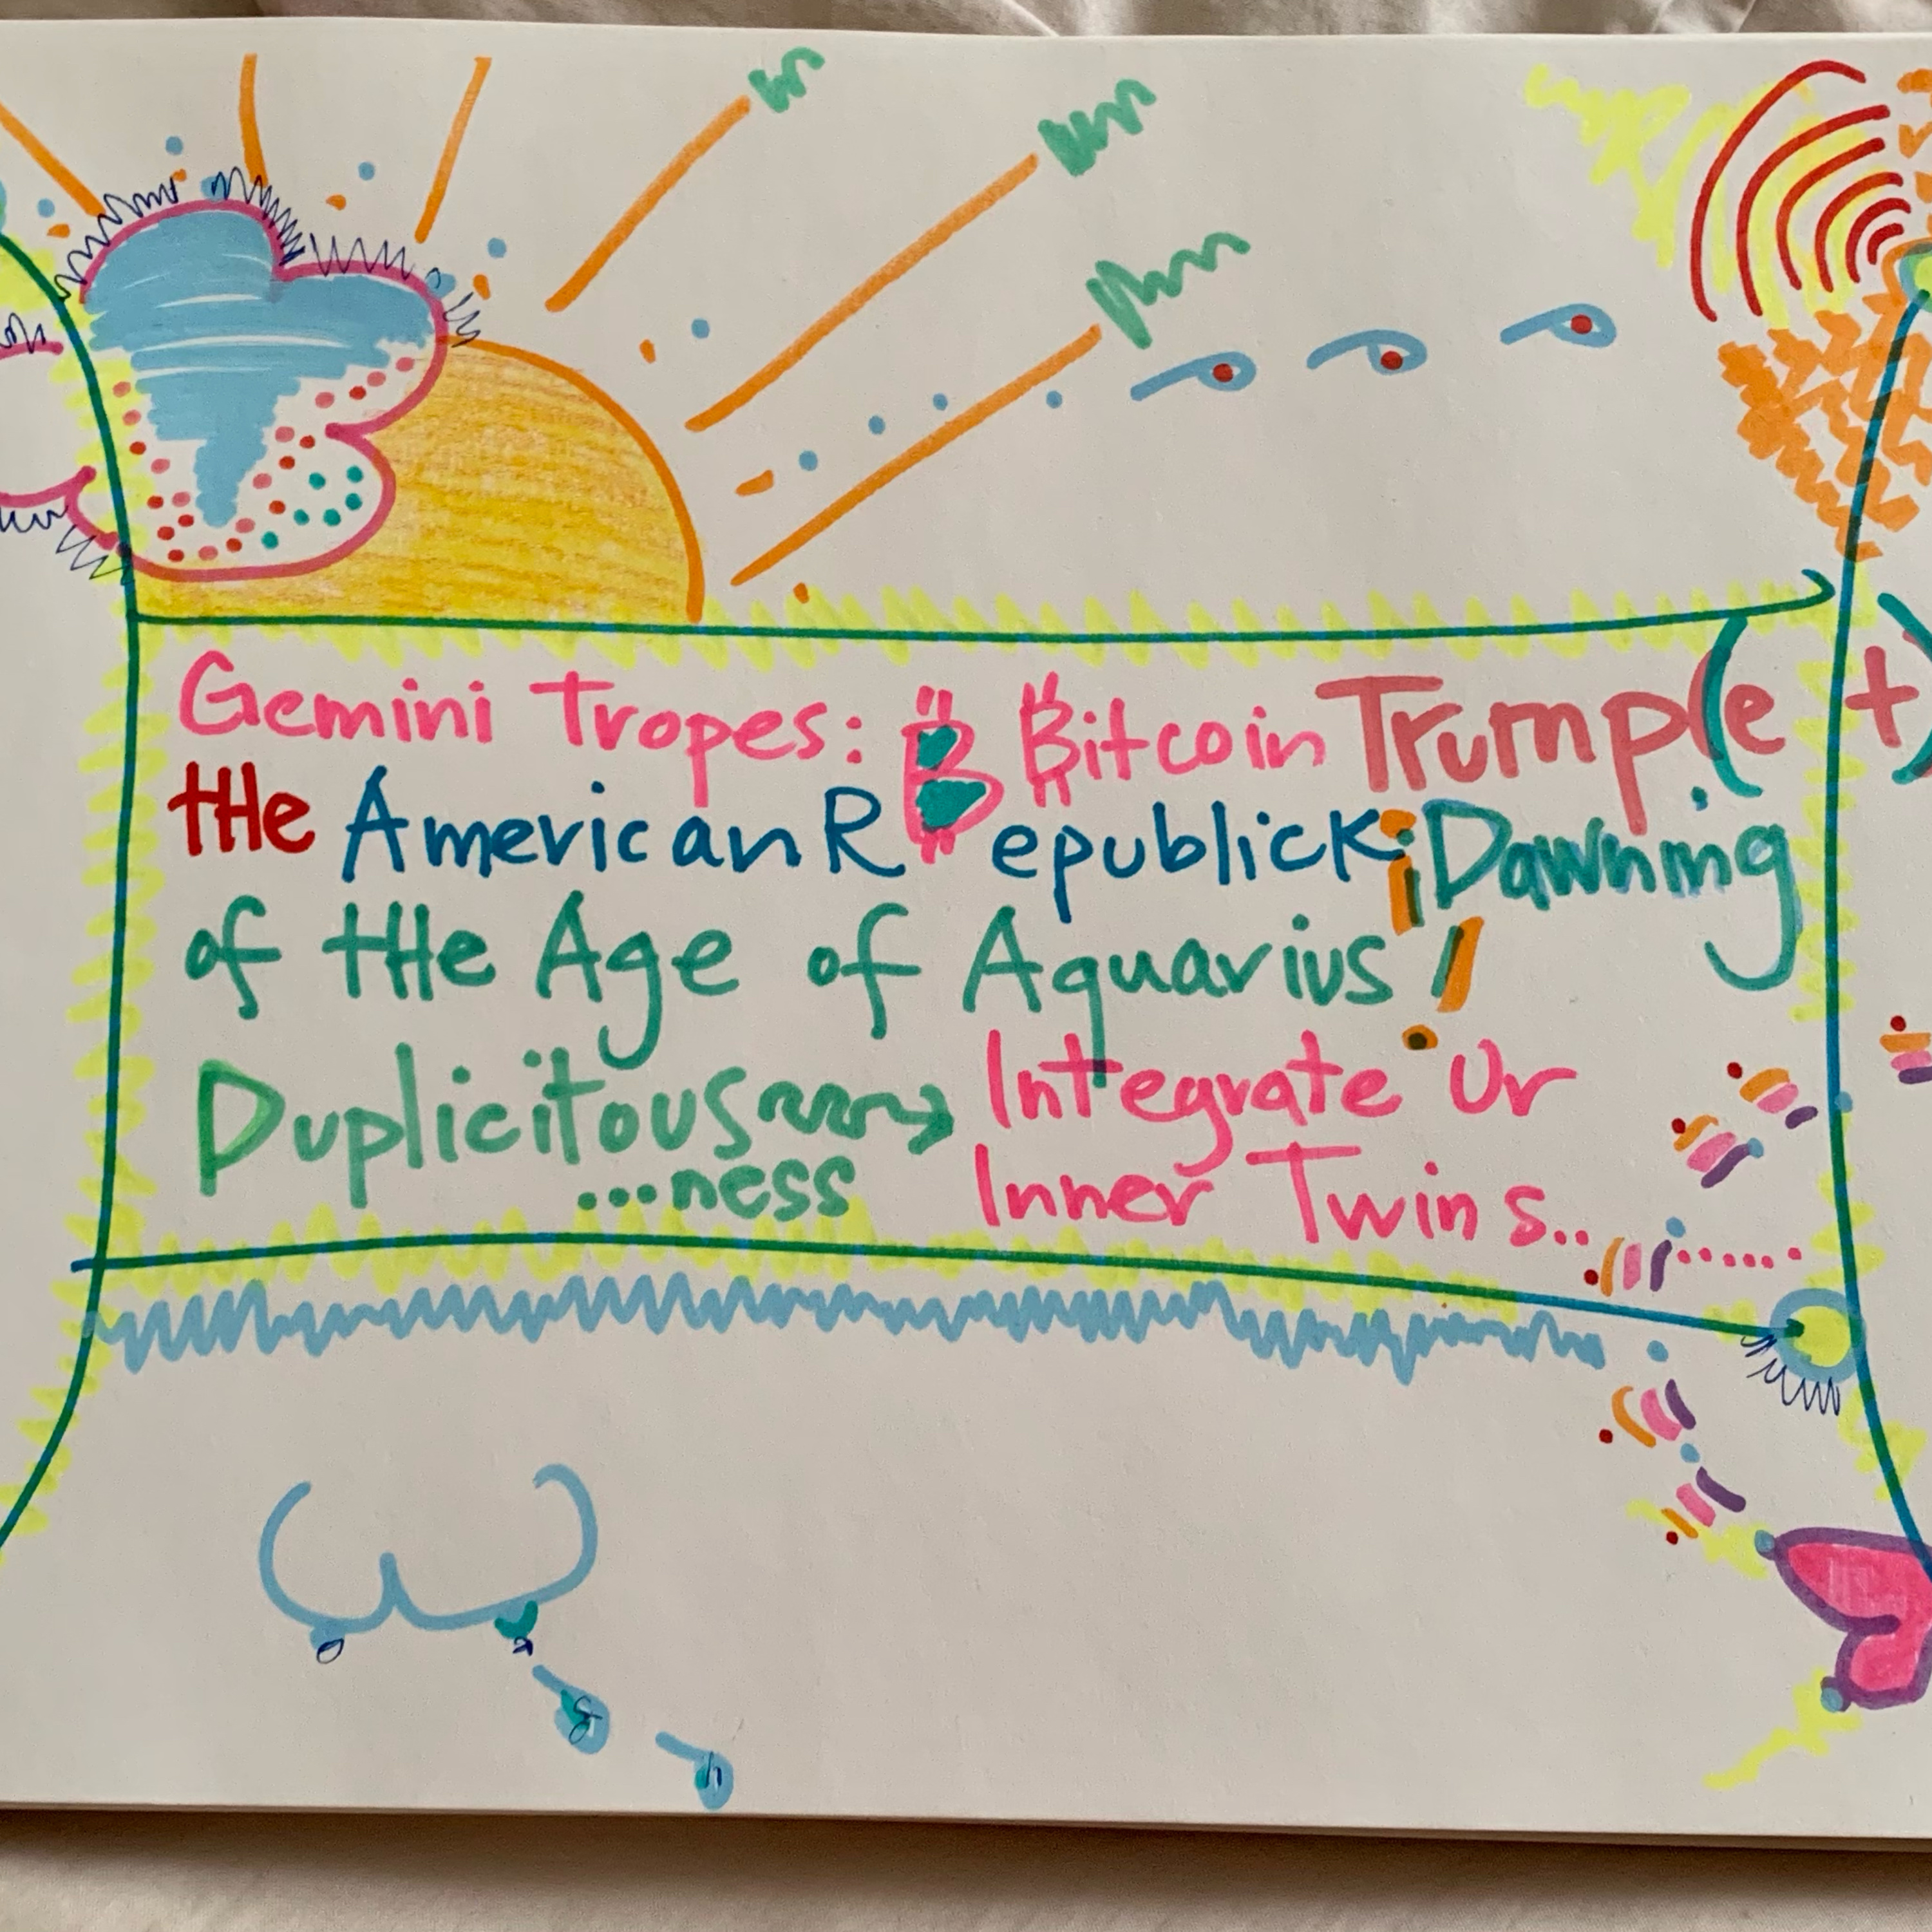 Gemini Tropes: ₿ ₿itcoin Trump(et)
tHe American Republick ¡Dawning
of tHe Age of Aquarius!
Duplicitous Integrate Ur
...ness Inner Twins........